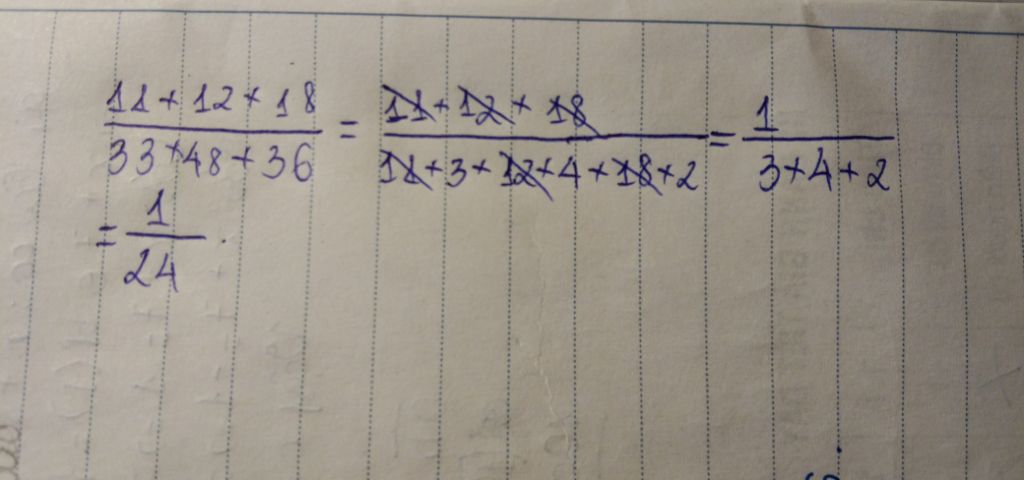 11 + 12 + 18 / 33 + 48 + 36 = 11 + 12 + 18 / 11 + 3 + 12 + 4 + 18 + 2 = 1 / 3 + 4 + 2
= 1 / 24 .